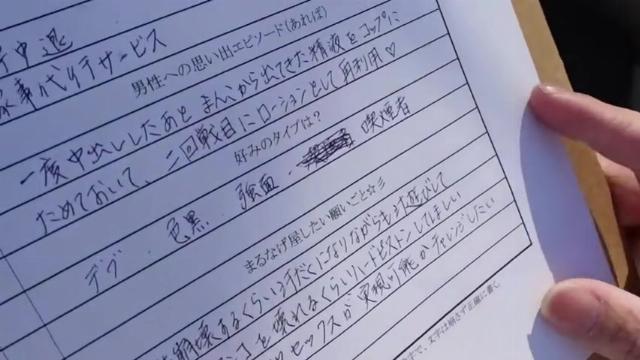 中退
家事代行サービス
男性への思い出エピソード(あれば)
一度中出ししたあと まんこから出てきた精液をコップに
ためておいて、二回戦目にローションとして再利用♡
好みのタイプは?
デブ 色黒 強面 喫煙者
まるなげ屋したい願いごと☆彡
崩壊するくらい汗だくになりながらも汁遊びして
コを壊れるくらいハードピストンしてほしい
セックスが実現可能かチャレンジしたい
で、文字は崩さず正確に書く